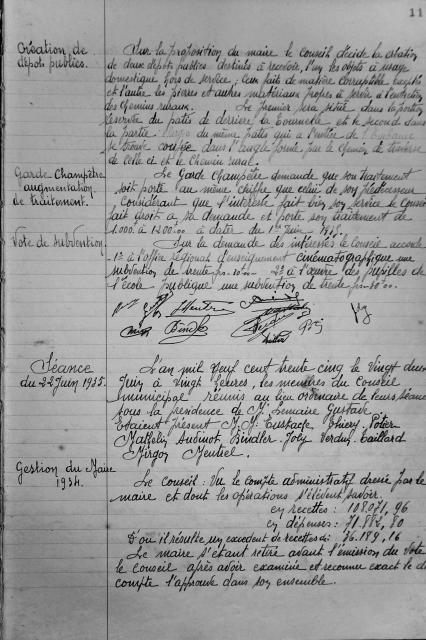 11
Création de
dépôts publics.
Sur la proposition du maire le Conseil décide la création
de deux dépôts publics destinés à recevoir, l'un les objets à usage
domestique hors de service; ceux faits de matière corruptible exceptés
et l'autre les pierres et autres matériaux propres à servir à l'entretien
des chemins ruraux. Le premier sera situé dans la portion
réservée du patis de derrière la Tournelle et le second dans
la partie du même patis qui à l'entrée de
se trouve coupée dans l'angle formé par le chemin de traverse
de celle ci et le chemin rural.
Garde Champêtre
augmentation
de traitement.
Le Garde Champêtre demande que son traitement
soit porté au même chiffre que celui de son prédécesseur
Considérant que l'intéressé fait bien son service le Conseil
fait droit à sa demande et porte son traitement de
1.000 à 1200.00 à date du 1er Juin 1935
Vote de subvention.
Sur la demande des intéressés le Conseil accorde
1º à l'office régional d'enseignement cinématographique une
subvention de trente frs 30.00 2º à l'œuvre des pupilles de
l'école publique une subvention de trente frs 30.00.
Bindler
Séance
du 22 Juin 1935.
L'an mil neuf cent trente cinq le vingt deux
Juin à vingt heures, les membres du Conseil
municipal réunis au lieu ordinaire de leurs séances
sous la présidence de M. Lemaire Gustave
étaient présent M.M. Eustache Thiery Potier
Mathelin Audinot Bindler Joly Verdun Gaillard
Mirgon Mentiel.
Gestion du Maire
1934.
Le conseil: Vu le compte administratif dressé par le
maire et dont les opérations s'élèvent savoir.
en recettes: 108.071,96
en dépenses: 71.882,80
D'où il résulte un excedent de recettes de: 36.189,16
Le maire s'étant retiré avant l'émission du vote
le conseil après avoir examiné et reconnu exact le dit
compte l'approuve dans son ensemble.